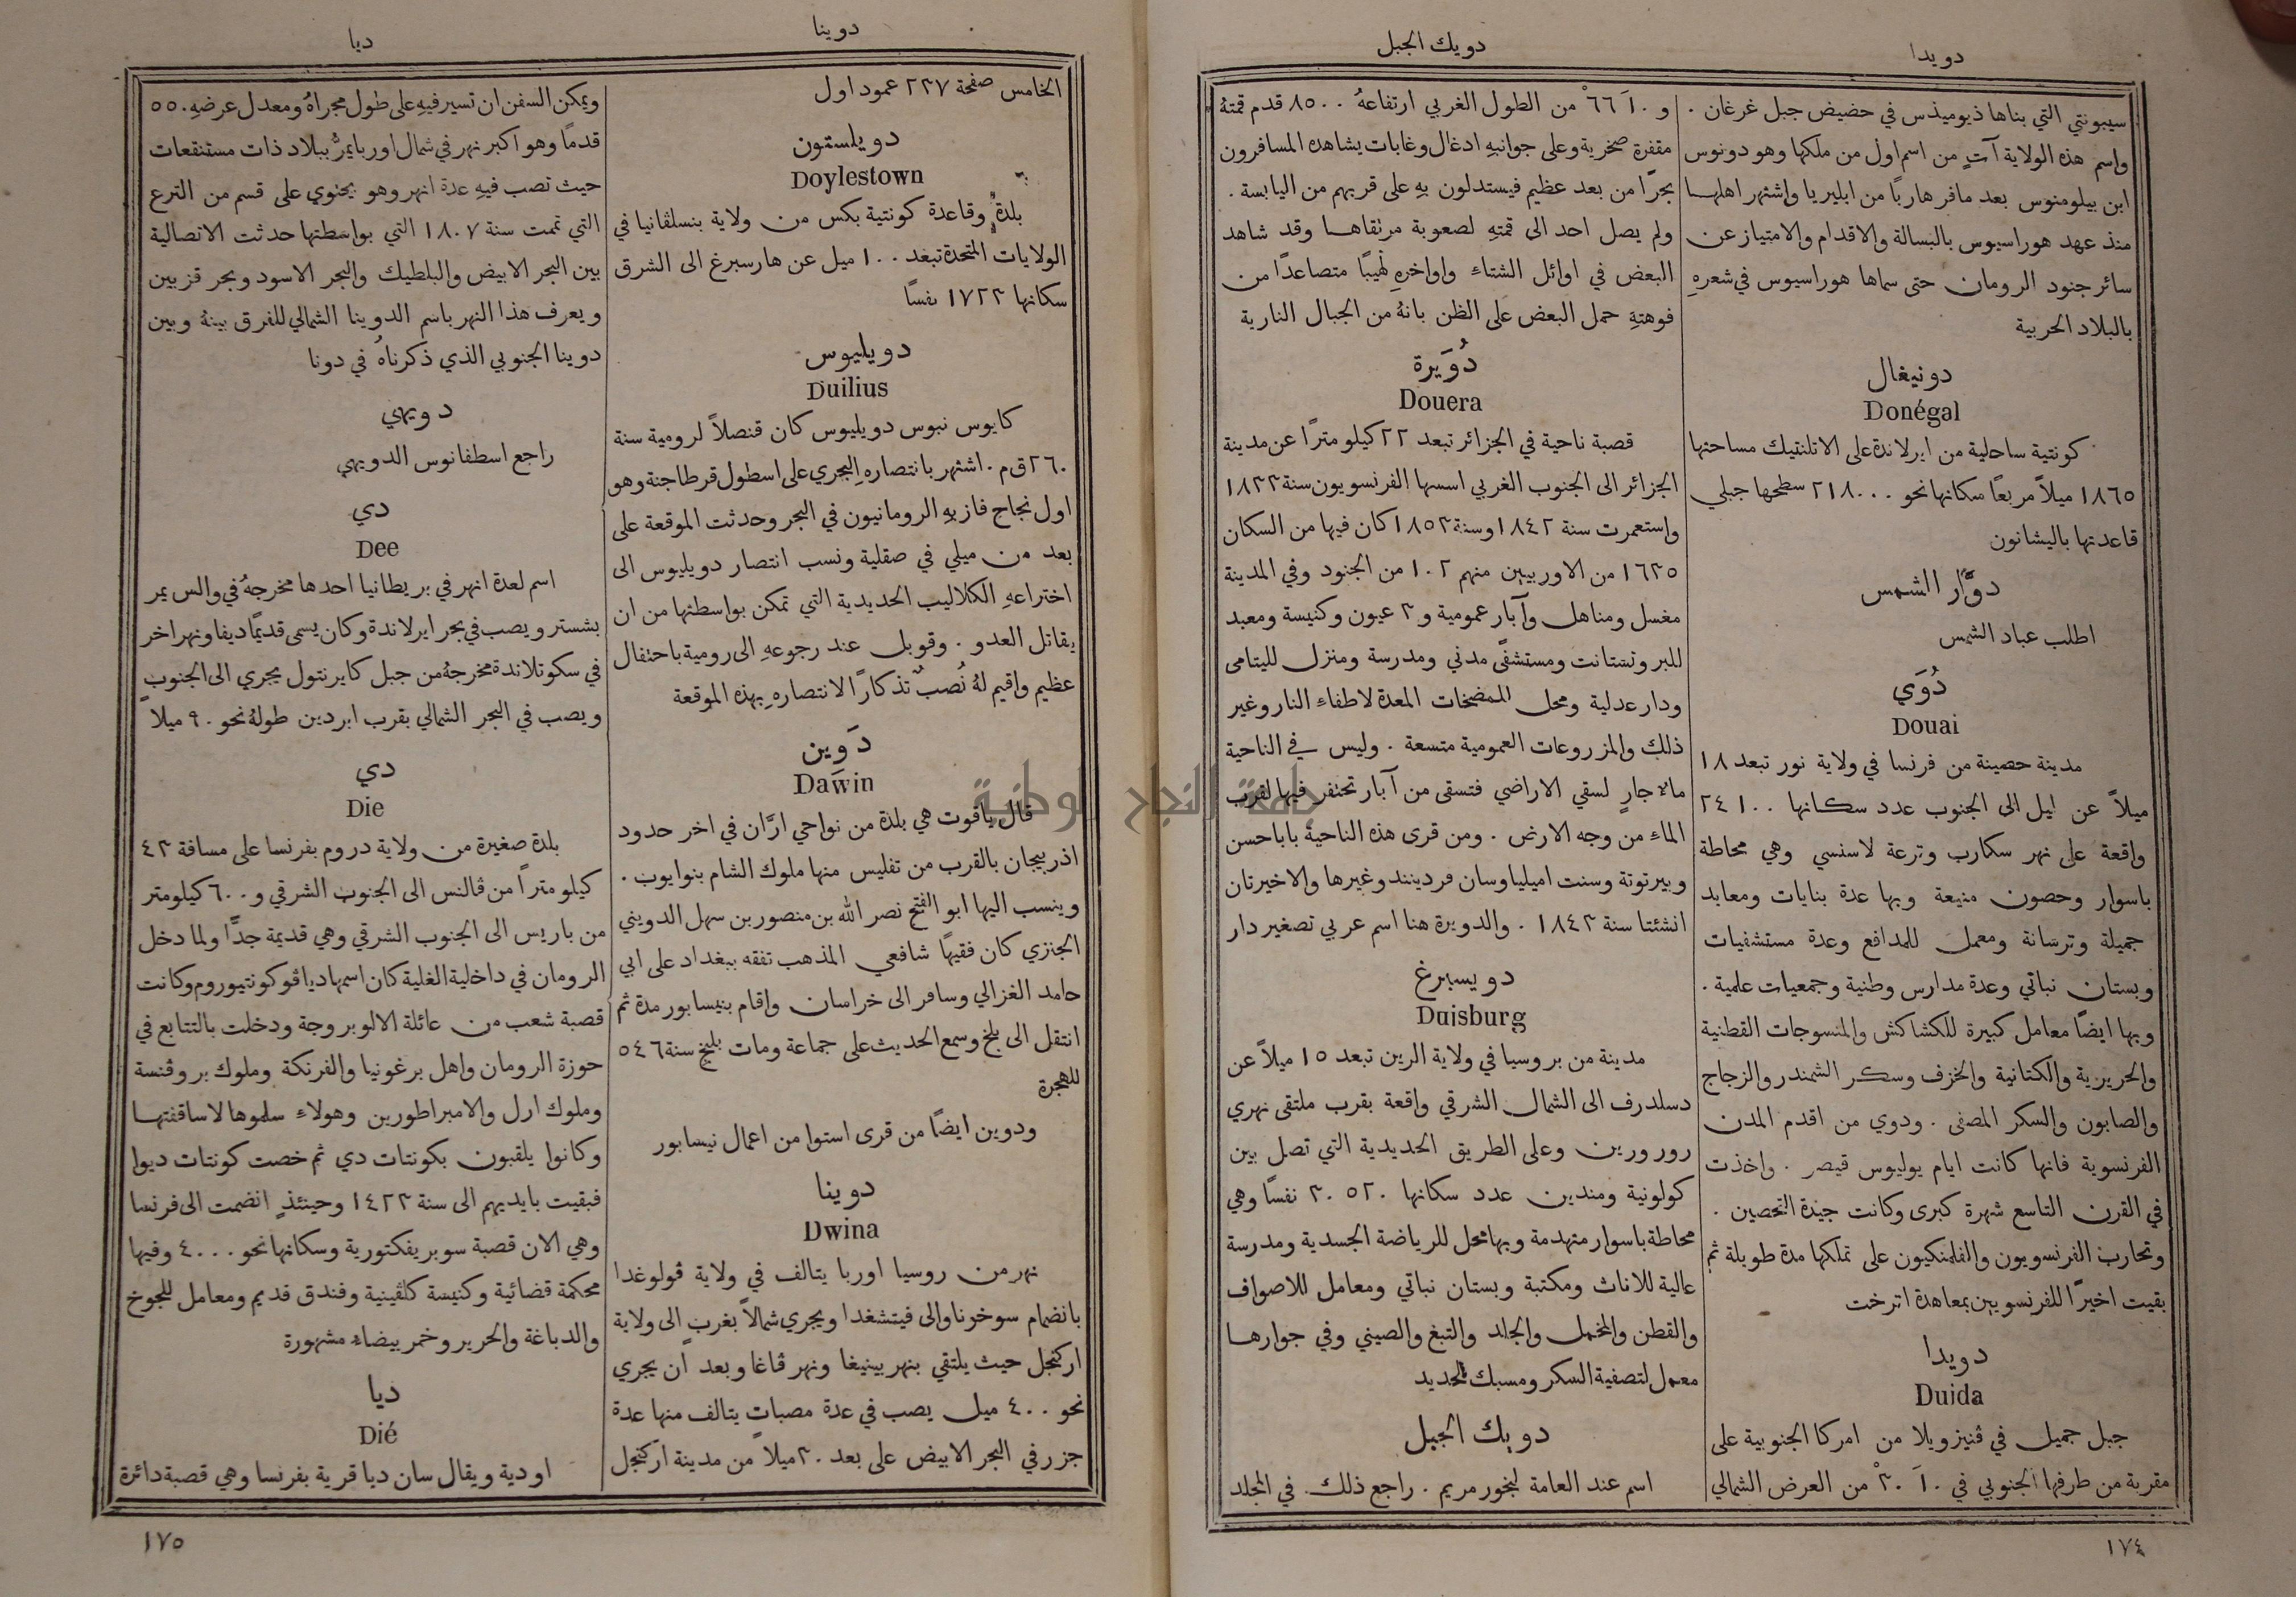 دويدا
دويك الجبل
سيبونتي التي بناها ذيوميذس في حضيض جبل غرغان .
واسم هذه الولاية آتٍ من اسم اول من ملكها وهو دونوس
ابن بيلومنوس بعد ما فر هاربًا من ايليريا واشتهر اهلها
منذ عهد هوراسيوس بالبسالة والاقدام والامتياز عن
سائر جنود الرومان حتى سماها هوراسيوس في شعرهِ
بالبلاد الحربية
دونيغال
Donégal
كونتية ساحلية من ايرلاندة على الاتلنتيك مساحتها
١٨٦٥ ميلاً مربعًا سكانها نحو ٢١٨٠٠٠ سطحها جبلي
قاعدتها باليشانون
دوَّار الشمس
اطلب عباد الشمس
دُوَي
Douai
مدينة حصينة من فرنسا في ولاية نور تبعد ١٨
ميلاً عن ليل الى الجنوب عدد سكانها ٢٤١٠٠
واقعة على نهر سكارب وترعة لاسنسي وهي محاطة
باسوار وحصون منيعة وبها عدة بنايات ومعابد
جميلة وترسانة ومعمل للمدافع وعدة مستشفيات
وبستان نباتي وعدة مدارس وطنية وجمعيات علمية .
وبها ايضًا معامل كبيرة للكشاكش والمنسوجات القطنية
والحريرية والكتانية والخزف وسكر الشمندر والزجاج
والصابون والسكر المصفى . ودوي من اقدم المدن
الفرنسوية فانها كانت ايام يوليوس قيصر . واخذت
في القرن التاسع شهرة كبرى وكانت جيدة التحصين .
وتحارب الفرنسويون والفلمنكيون على تملكها مدة طويلة ثم
بقيت اخيرًا للفرنسويين بمعاهدة اترخت
دويدا
Duida
جبل جميل في ڤنيزويلا من امركا الجنوبية على
مقربة من طرفها الجنوبي في ١٠َ ٣ْ من العرض الشمالي
و١٠َ ٦٦ْ من الطول الغربي ارتفاعهُ ٨٥٠٠ قدم قمتهُ
مقفرة صخرية وعلى جوانبهِ ادغال وغابات يشاهده المسافرون
بحرًا من بعد عظيم فيستدلون بهِ على قربهم من اليابسة .
ولم يصل احد الى قمتهِ لصعوبة مرتقاها وقد شاهد
البعض في اوائل الشتاء واواخرهِ لهيبًا متصاعدًا من
فوهتهِ حمل البعض على الظن بانهُ من الجبال النارية
دُوَيرة
Douera
قصبة ناحية في الجزائر تبعد ٢٢ كيلومترًا عن مدينة
الجزائر الى الجنوب الغربي اسسها الفرنسويون سنة ١٨٣٣
واستعمرت سنة ١٨٤٢ وسنة ١٨٥٣ كان فيها من السكان
١٦٣٥ من الاوربيين منهم ١٠٢ من الجنود وفي المدينة
مغسل ومناهل وآبار عمومية و٣ عيون وكنيسة ومعبد
للبروتستانت ومستشفى مدني ومدرسة ومنزل لليتامى
ودار عدلية ومحل المضخات المعدة لاطفاء النار وغير
ذلك والمزروعات العمومية متسعة . وليس في الناحية
مالا جارٍ لسقي الاراضي فتسقى من آبار تحتفر فيها لقرب
الماء من وجه الارض . ومن قرى هذه الناحية باباحسن
وبيرتوتة وسنت اميليا وسان فردينند وغيرها والاخيرتان
انشئتا سنة ١٨٤٣ . والدويرة هنا اسم عربي تصغير دار
دويسبرغ
Duisburg
مدينة من بروسيا في ولاية الرين تبعد ١٥ ميلاً عن
دسلدرف الى الشمال الشرقي واقعة بقرب ملتقى نهري
رور ورين وعلى الطريق الحديدية التي تصل بين
كولونية ومندين عدد سكانها ٣٠٥٢٠ نفسًا وهي
محاطة باسوار متهدمة وبها محل للرياضة الجسدية ومدرسة
عالية للاناث ومكتبة وبستان نباتي ومعامل للاصواف
والقطن والمخمل والجلد والتبغ والصيني وفي جوارها
معمل لتصفية السكر ومسبك للحديد
دويك الجبل
اسم عند العامة لبخور مريم . راجع ذلك في المجلد
١٧٤
دوينا
ديا
الخامس صفحة ٢٣٧ عمود اول
دويلستون
Doylestown
بلدة وقاعدة كونتية بكس من ولاية بنسلڤانيا في
الولايات المتحدة تبعد ١٠٠ ميل عن هارسبرغ الى الشرق
سكانها ١٧٢٣ نفسًا
دويليوس
Duilius
كايوس نبوس دويليوس كان قنصلاً لرومية سنة
٢٦٠ ق م . اشتهر بانتصارهِ البحري على اسطول قرطاجنة وهو
اول نجاح فاز بهِ الرومانيون في البحر وحدثت الموقعة على
بعد من ميلي في صقلية ونسب انتصار دويليوس الى
اختراعهِ الكلاليب الحديدية التي تمكن بواسطتها من ان
يقاتل العدو . وقوبل عند رجوعهِ الى رومية باحتفال
عظيم واقيم لهُ نُصبٌ تذكارًا لانتصارهِ بهذه الموقعة
دَوِين
Dawin
قال ياقوت هي بلدة من نواحي ارَّان في اخر حدود
اذربيجان بالقرب من تفليس منها ملوك الشام بنو ايوب .
وينسب اليها ابو الفتح نصر الله بن منصور بن سهل الدويني
الجنزي كان فقيهًا شافعي المذهب تفقه ببغداد على ابي
حامد الغزالي وسافر الى خراسان واقام بنيسابور مدة ثم
انتقل الى بلخ وسمع الحديث على جماعة ومات ببلخ سنة ٥٤٦
للهجرة
ودوين ايضًا من قرى استوا من اعمال نيسابور
دوينا
Dwina
نهر من روسيا اوربا يتالف في ولاية ڤولوغدا
بانضمام سوخونا والى فيتشغدا ويجري شمالاً بغربٍ الى ولاية
اركنجل حيث يلتقي بنهر بينيغا ونهر ڤاغا وبعد ان يجري
نحو ٤٠٠ ميل يصب في عدة مصباتٍ يتالف منها عدة
جزر في البحر الابيض على بعد ٣٠ ميلاً من مدينة اركنجل
ويمكن السفن ان تسير فيهِ على طول مجراهُ ومعدل عرضهِ ٥٥٠
قدمًا وهو اكبر نهر في شمال اوربا يمرُّ ببلاد ذات مستنقعات
حيث تصب فيهِ عدة انهر وهو يحتوي على قسم من الترع
التي تمت سنة ١٨٠٧ التي بواسطتها حدثت الاتصالية
بين البحر الابيض والبلطيك والبحر الاسود وبحر قزبين
ويعرف هذا النهر باسم الدوينا الشمالي للفرق بينهُ وبين
دوينا الجنوبي الذي ذكرناهُ في دونا
دويهي
راجع اسطفانوس الدويهي
دي
Dee
اسم لعدة انهر في بريطانيا احدها مخرجهُ في والس يمر
بشستر ويصب في بحر ايرلاندة وكان يسمى قديمًا ديفا ونهر اخر
في سكوتلاندة مخرجهُ من جبل كايرنتول يجري الى الجنوب
ويصب في البحر الشمالي بقرب ابردين طولهُ نحو ٩٠ ميلاً
دي
Die
بلدة صغيرة من ولاية دروم بفرنسا على مسافة ٤٣
كيلومتراً من ڤالنس الى الجنوب الشرقي و٦٠٠ كيلومتر
من باريس الى الجنوب الشرقي وهي قديمة جدًّا ولما دخل
الرومان في داخلية الغلية كان اسمها ديا ڤوكونتيوروم وكانت
قصبة شعب من عائلة الالوبروجة ودخلت بالتتابع في
حوزة الرومان واهل برغونيا والفرنكة وملوك بروڤنسة
وملوك ارل والامبراطورين وهولاء سلموها لاساقفتها
وكانوا يلقبون بكونتات دي ثم خصت كونتات ديوا
فبقيت بايديهم الى سنة ١٤٢٣ وحينئذٍ انضمت الى فرنسا
وهي الان قصبة سوبريفكتورية وسكانها نحو ٤٠٠٠ وفيها
محكمة قضائية وكنيسة كلڤينية وفندق قديم ومعامل للجوخ
والدباغة والحرير وخمر بيضاء مشهورة
ديا
Dié
اودية ويقال سان ديا قرية بفرنسا وهي قصبة دائرة
١٧٥
جامعة النجاح الوطنية